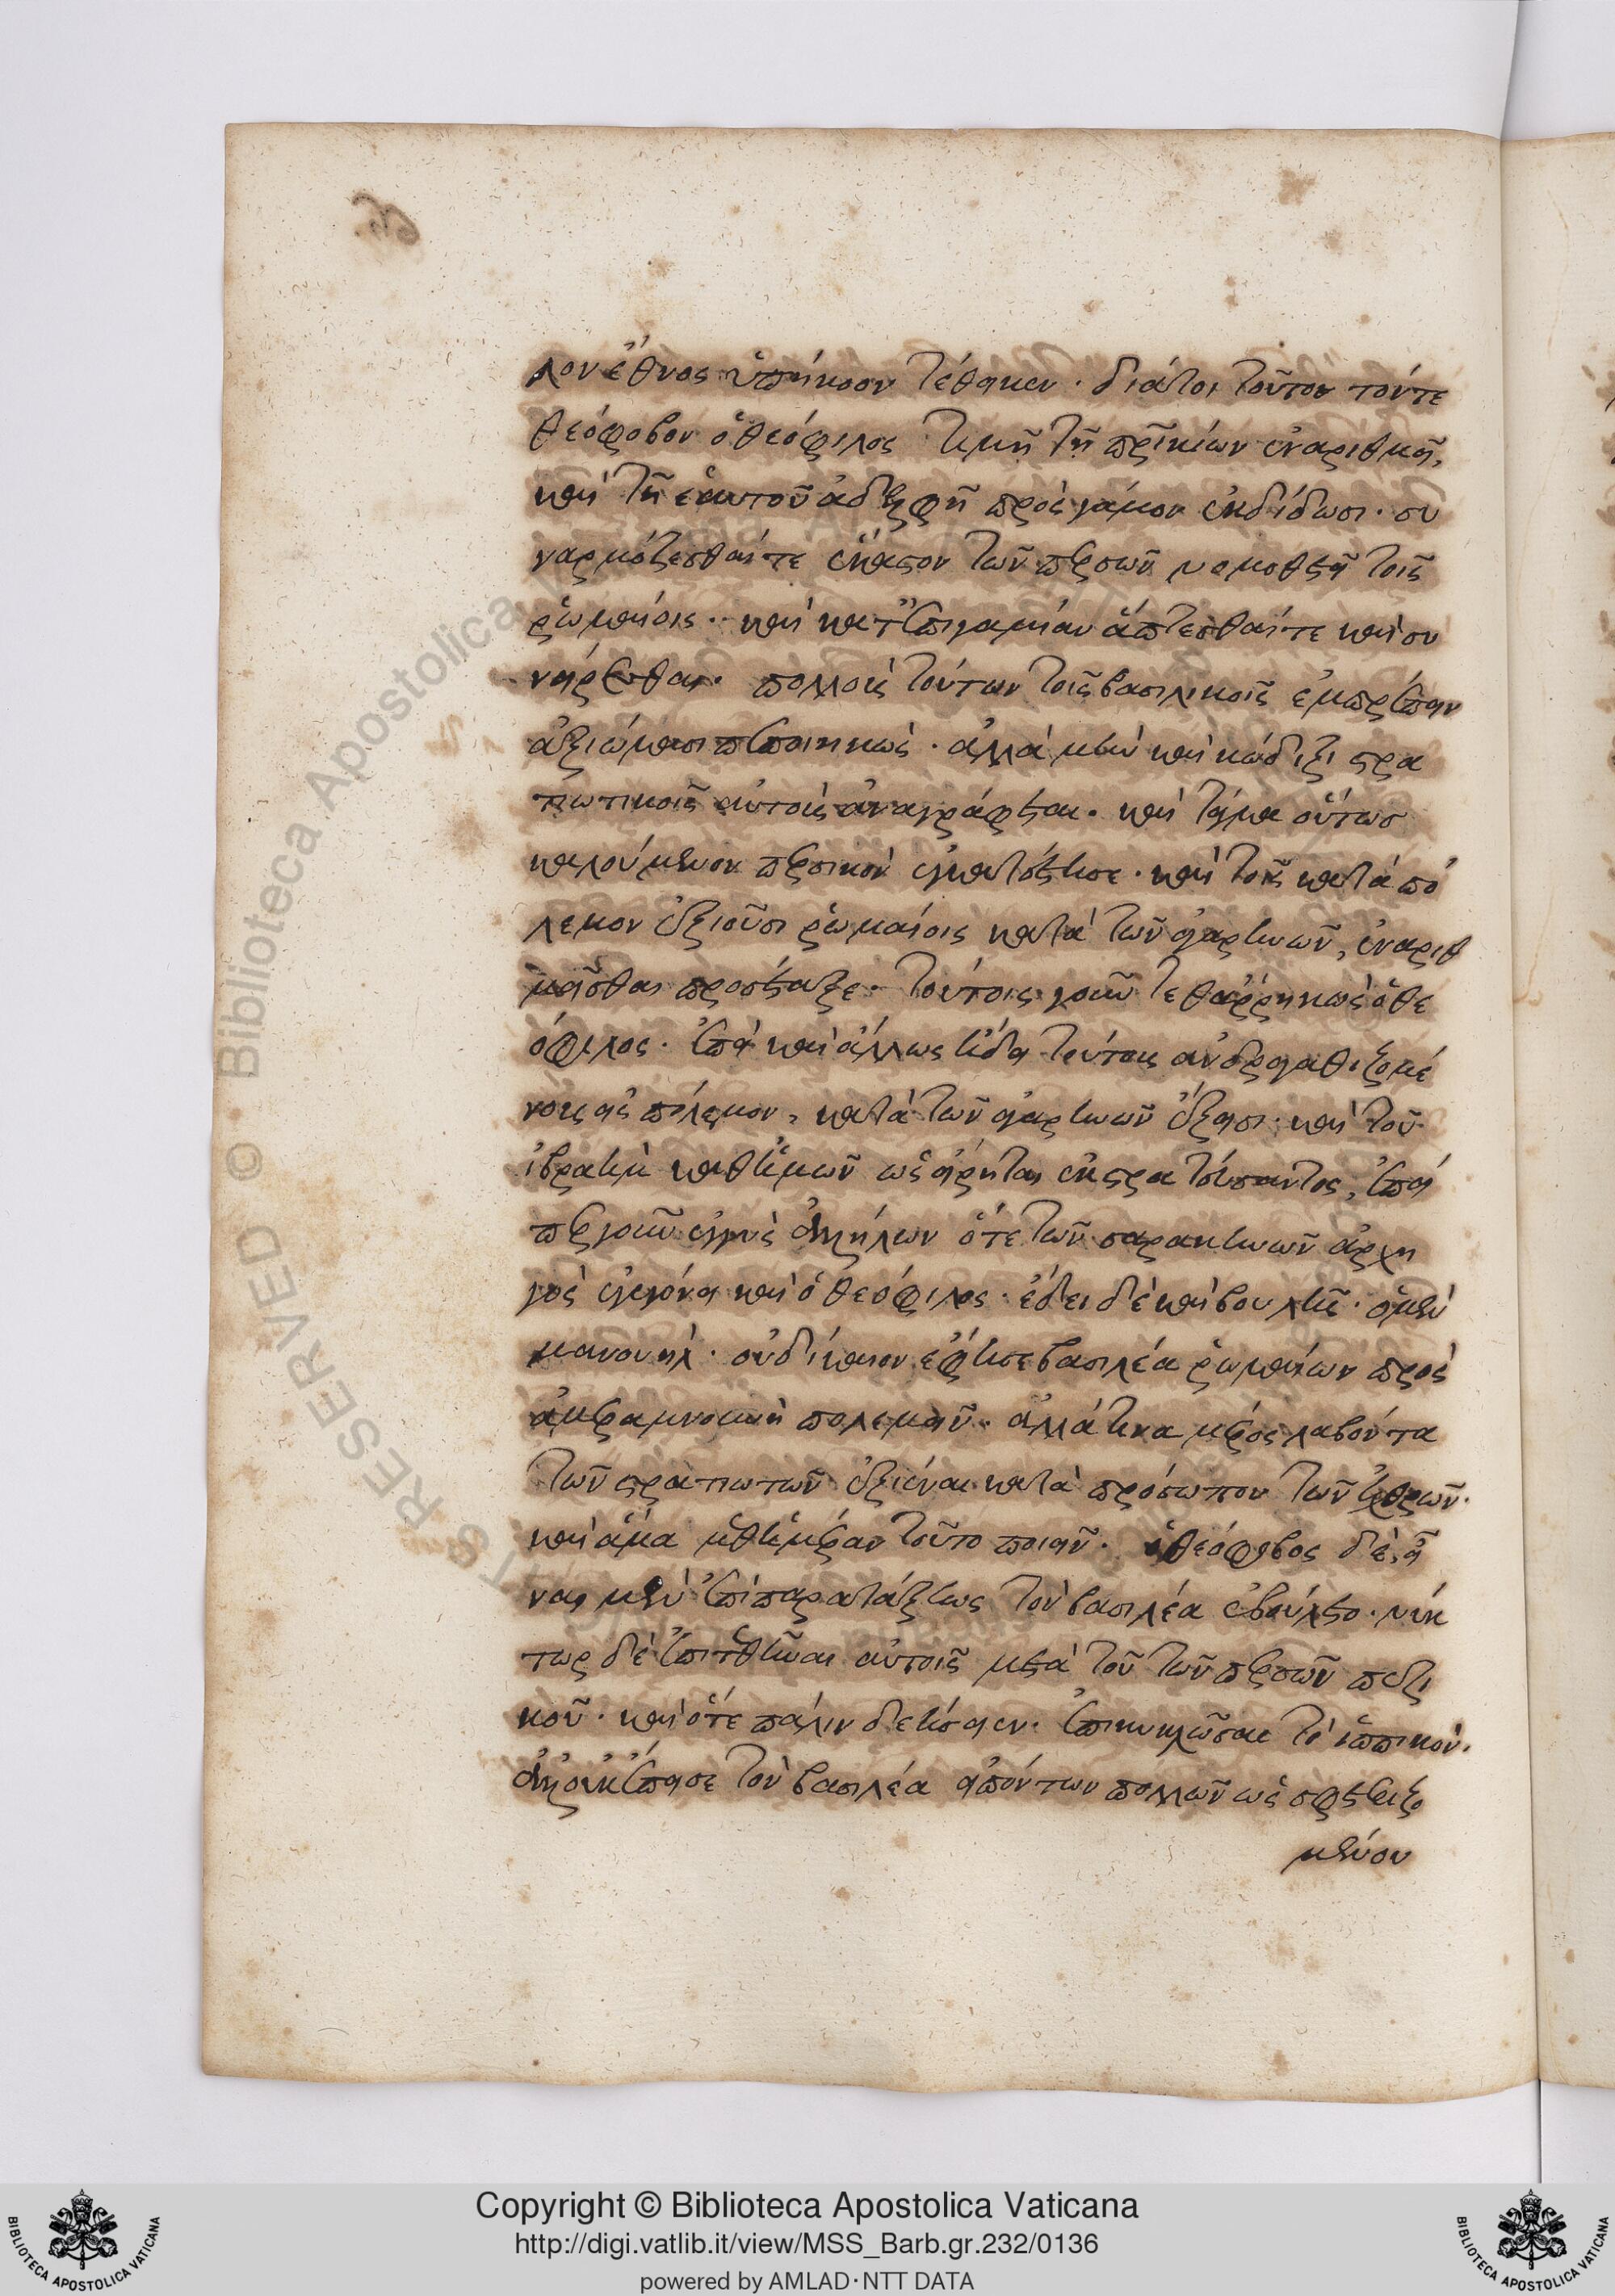 λον ἔθνος ὑπήκοον τέθηκεν · διά τοι τοῦτον τόν τε
θεόφοβον ὁ θεόφιλος τιμῆ τῆ πρικίων ἐναριθμεῖ,
καὶ τῆ ἑαυτοῦ ἀδελφῆ πρὸς γάμον ἐκδίδωσι · συ
ναρμόζεσθαί τε ἕκαστον τῶν περσῶν νομοθετεῖ τοῖς
ῥωμαίοις · καὶ κατ' ἐπιγαμίαν ἅπτεσθαί τε καὶ συ
ναίρεσθαι · πολλοὺς τούτων τοῖς βασιλικοῖς ἐμπρέπειν
ἀξιώμασι πεποιηκὼς · ἀλλὰ μὲν καὶ κώδιξι στρα
τιωτικοῖς αὐτοὺς ἀναγράφεται · καὶ τάγμα οὕτως
καλούμενον περσικὸν ἐγκατέστησε · καὶ τοῖς κατὰ πό
λεμον ἐξιοῦσι ῥωμαίοις κατὰ τῶν ἀγαρηνῶν, ἐναριθ
μεῖσθαι προσέταξε · τούτοις γοῦν τεθαρρηκὼς ὁ θε
όφιλος · ἐπεὶ καὶ ἄλλως ᾔδει τούτους ἀνδραγαθιζομέ
νους εἰς πόλεμον, κατὰ τῶν ἀγαρηνῶν ἔξεισι · καὶ τοῦ
ἰβραὴμ καθ' ἡμῶν ὡς εἴρηται ἐκστρατεύσαντος, ἐπεὶ
περ γοῦν ἐγγὺς ἀλλήλων ὅ τε τῶν σαρακηνῶν ἀρχη
γὸς ἐγεγόνει καὶ ὁ θεόφιλος · ἔδει δὲ καὶ βουλῆς · ὁ μὲν
μανουὴλ · οὐ δίκαιον ἔφησε βασιλέα ῥωμαίων πρὸς
ἀμεραμνουνῆ πολεμεῖν · ἀλλά τινα μέρος λαβόντα
τῶν στρατιωτῶν ἐξιέναι κατὰ πρόσωπον τῶν ἐχθρῶν ·
καὶ ἅμα μεθ' ἡμέραν τοῦτο ποιεῖν · ὁ θεόφοβος δὲ, εἶ
ναι μὲν ἐπὶ παρατάξεως τὸν βασιλέα ἐβούλετο · νύκ
τωρ δὲ ἐπιτεθῆναι αὐτοῖς μετὰ τοῦ τῶν περσῶν πεζι
κοῦ · καὶ ὅτε πάλιν δεήσειεν · ἐπικυκλῶσαι τὸ ἱππικόν ·
ἀλλ' οὐκ ἔπεισε τὸν βασιλέα εἰπόντων πολλῶν ὡς σφετεριζο
μένου